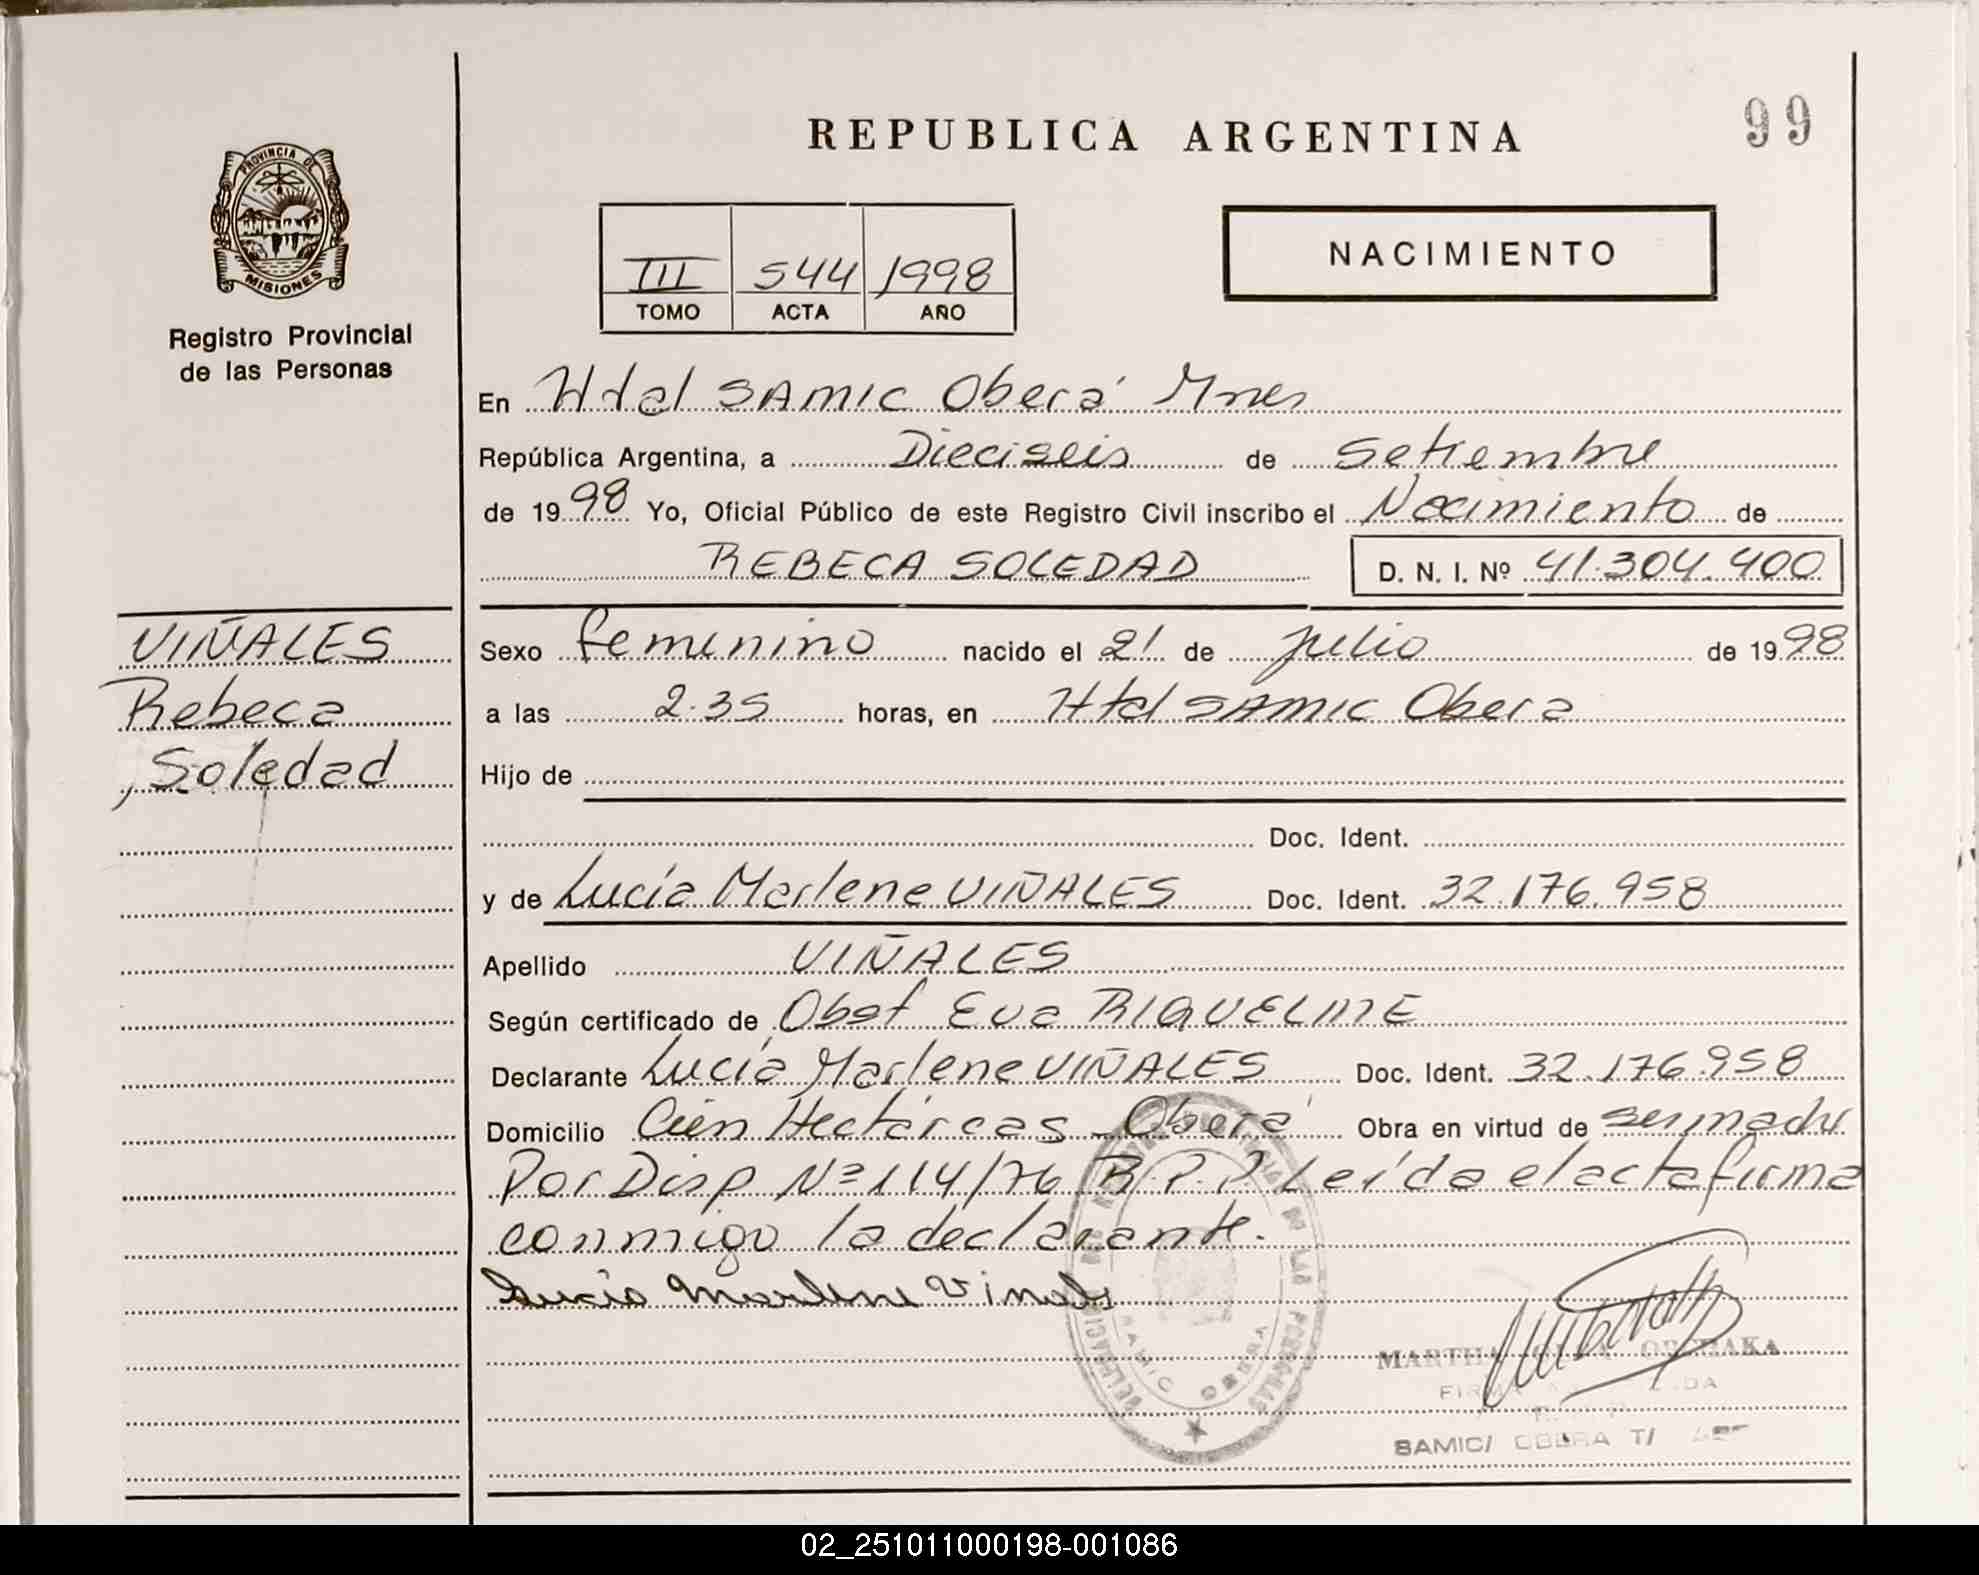 REPUBLICA ARGENTINA
99
PROVINCIA DE
MISIONES
Registro Provincial
de las Personas
NACIMIENTO
III 544 1998
TOMO ACTA AÑO
En Htal SAMIC Oberá Mnes
República Argentina, a Dieciseis de Setiembre
de 1998 Yo, Oficial Público de este Registro Civil inscribo el Nacimiento de
REBECA SOLEDAD D. N. I. Nº 41.304.400
VIÑALES
Rebeca
Soledad
Sexo femenino nacido el 21 de julio de 1998
a las 2.35 horas, en Htal SAMIC Obera
Hijo de
Doc. Ident.
y de Lucía Marlene VIÑALES Doc. Ident. 32.176.958
Apellido VIÑALES
Según certificado de Obst Eva RIQUELME
Declarante Lucía Marlene VIÑALES Doc. Ident. 32.176.958
Domicilio Cien Hectáreas Oberá Obra en virtud de ser madre
Por Disp Nº 114/76 R.P.P Leída el acta firma
conmigo la declarante.
Lucia Marlene Viñales
MARTHA
SAMIC/ OBERA
02_251011000198-001086